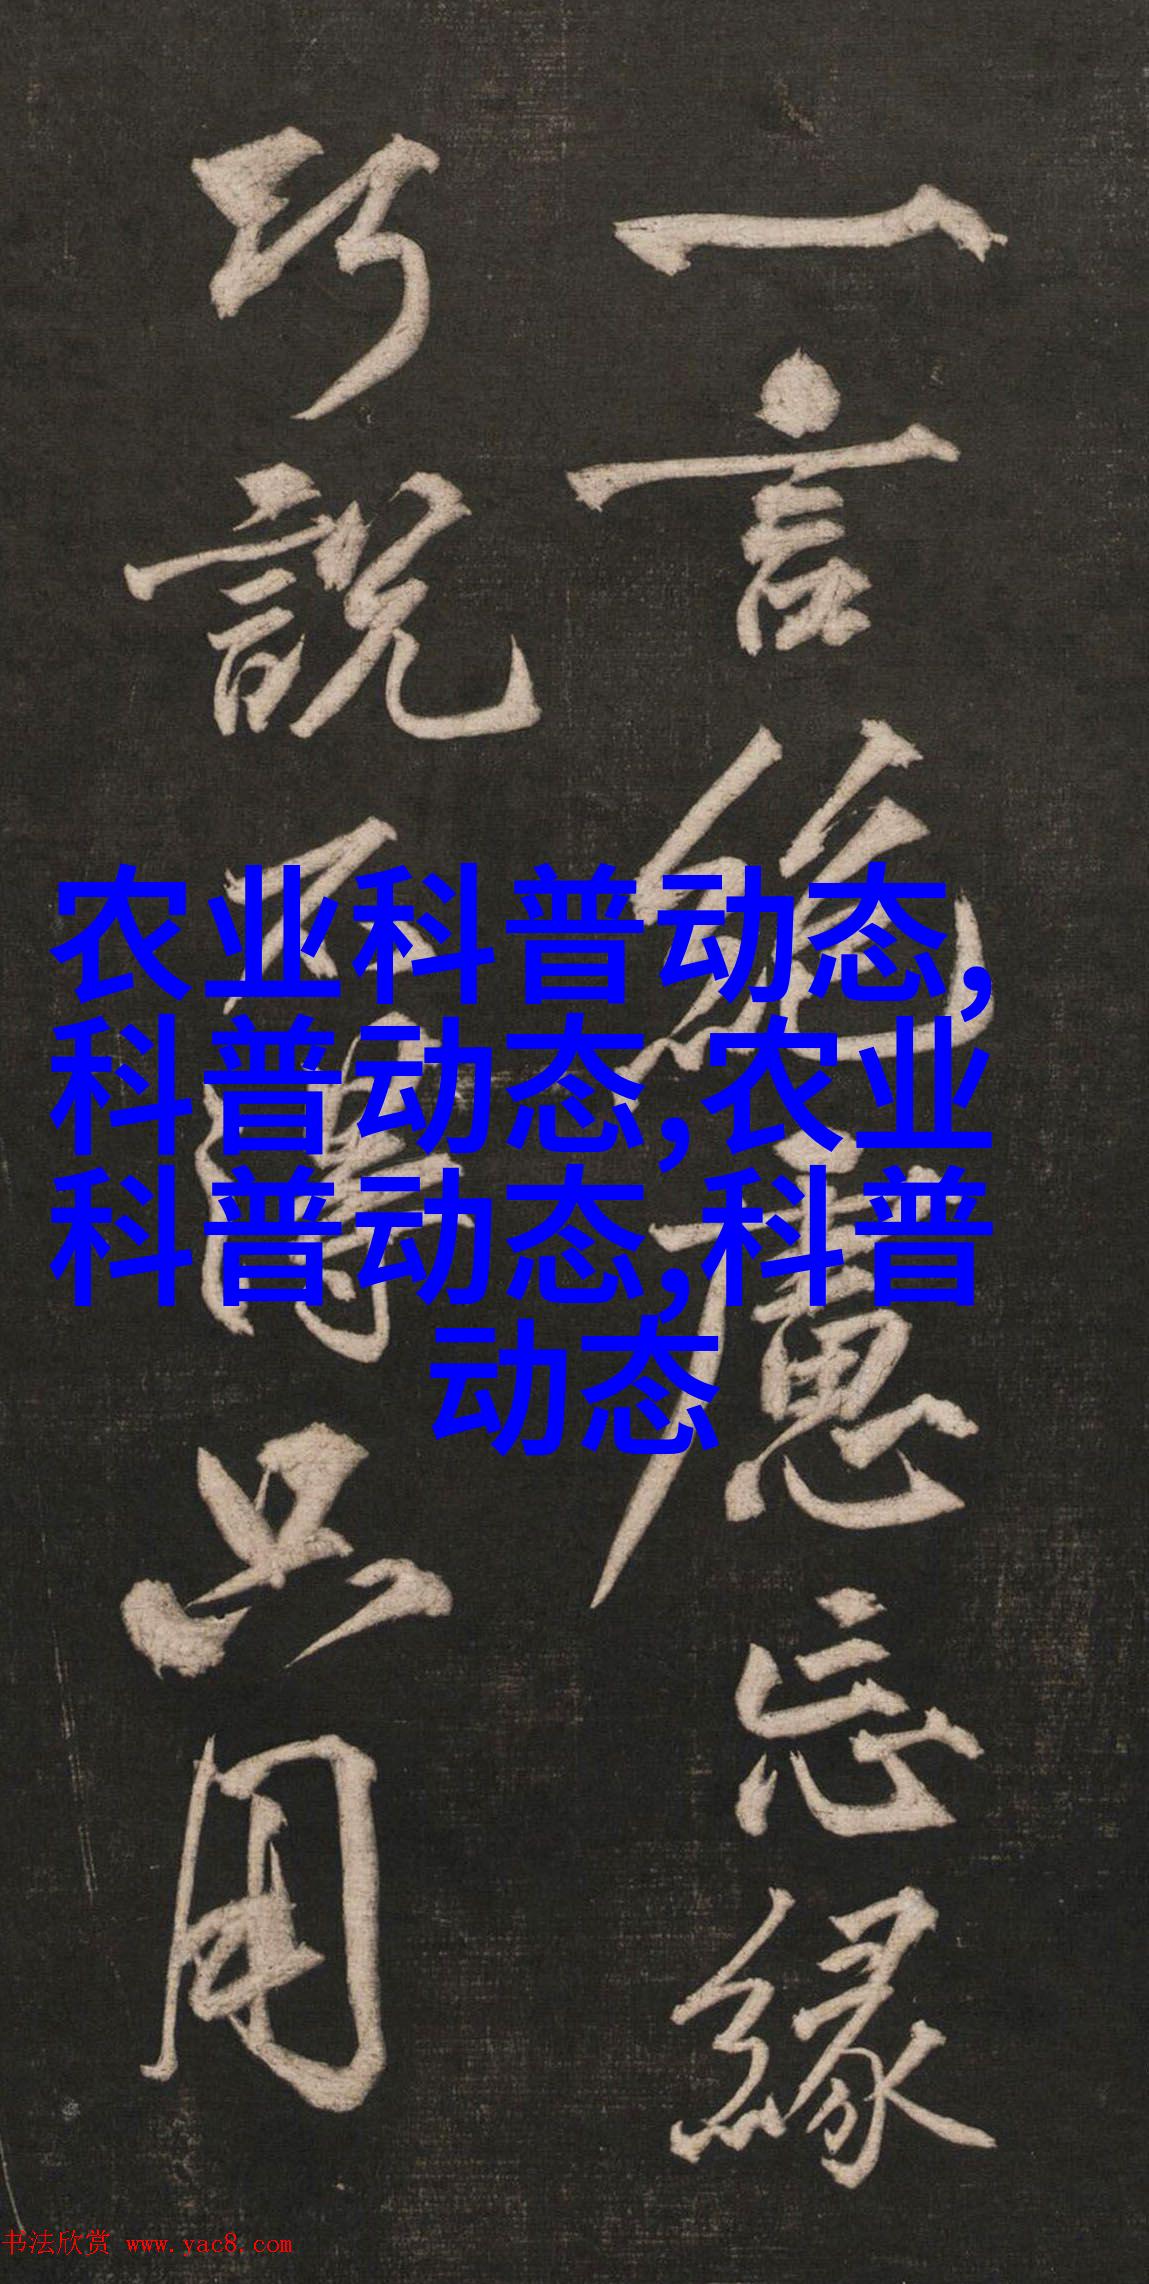 一言絶慮忘緣
巧說不得只用
农业科普动态,
科普动态,农业
科普动态,科普
动态
书法欣赏 www.yac8.com